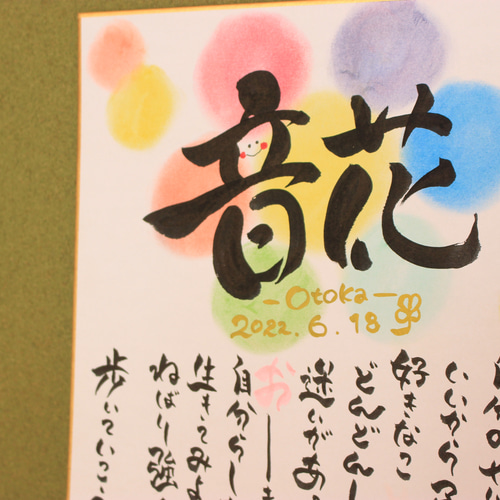 音花
-Otoka-
2022.6.18
いいから
好きなこ
どんどんし
迷いがあ
お
自分らし
生きてみよ
ねばり強
歩いていこう